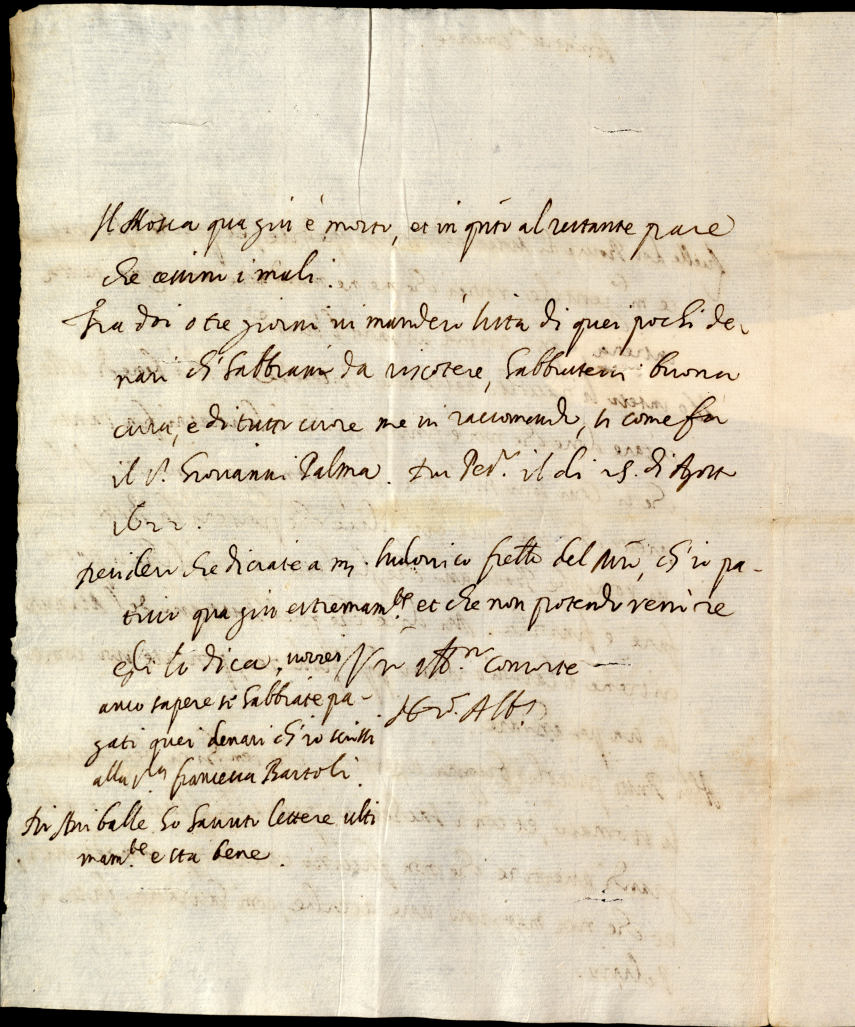 Il Mosca qua giù è morto, et in q̃sto al restante pare
che cessino i mali.
Fra doi o tre giorni vi manderò lista di quei pochi de-
nari ch'habbiam da riscotere, habbiatevi buona
cura, e di tutto cuore me vi raccomando, sì come fa
il S.r Giovanni Palma. Di Ped.º il di 25. di Agosto
1622.
Desidero che diciate a m. Ludovico frello del ñro, ch'io pa-
tisco qua giù estremam.te et che non potendo venire
egli lo dica, vorrei V̄r̄ aff.mo consorte
anco sapere se habbiate pa-
gati quei denari ch'io scrissi
alla S.ra Francesca Bartoli.
Di Aniballe ho havuto lettere ulti
mam.te e sta bene.